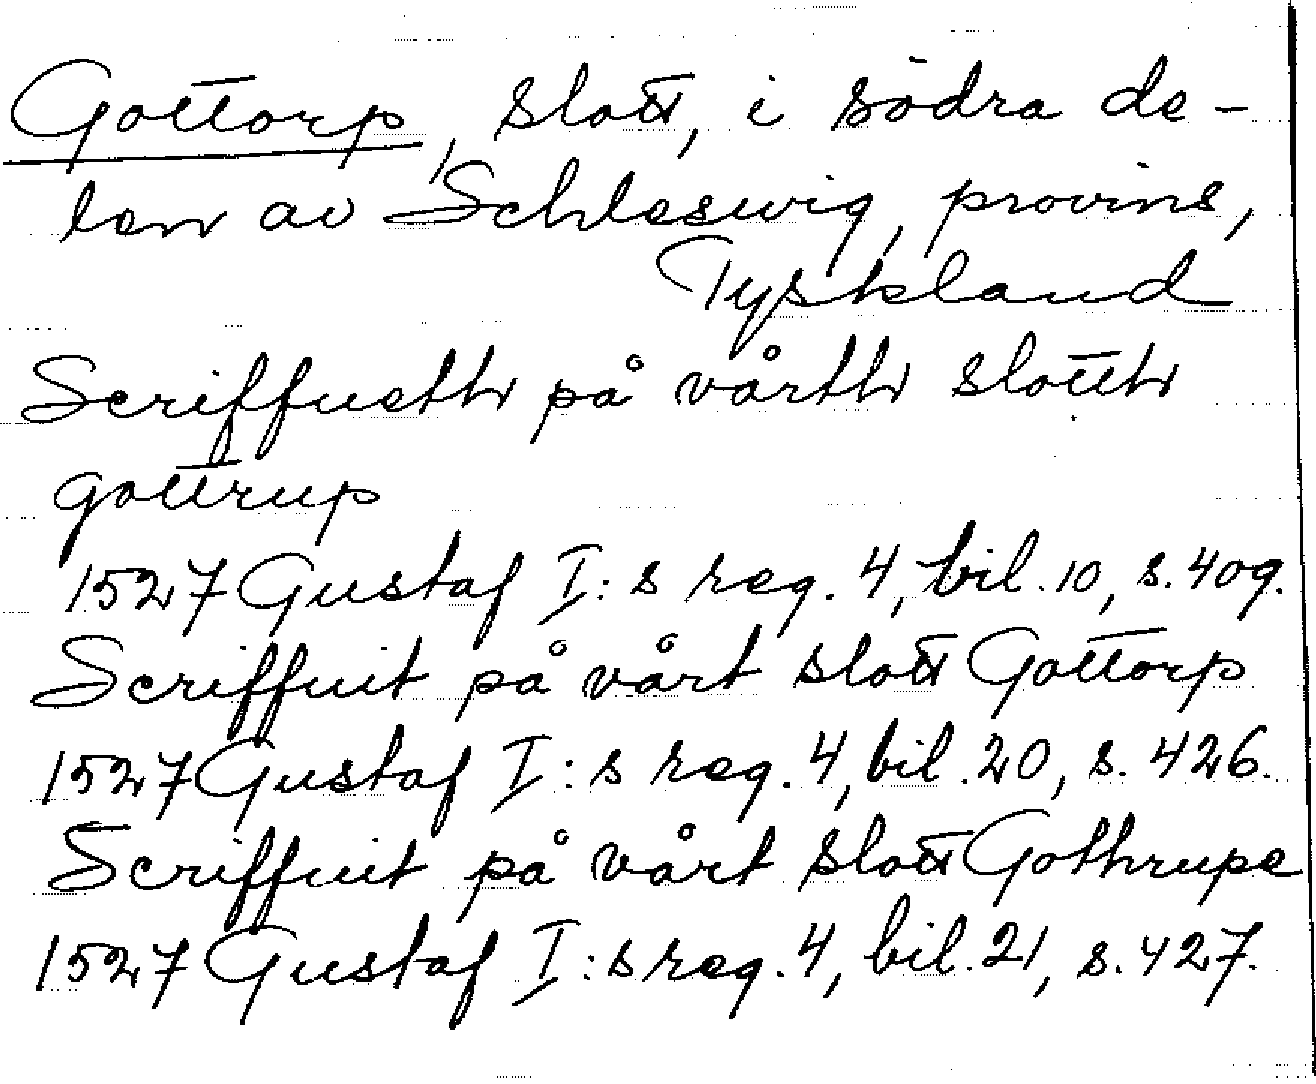 Gottorp, slott, i södra de-
len av Schleswig, provins,
Tyskland
Scriffueth på vårth slotth
gottrup
1527 Gustaf I:s reg. 4, bil. 10, s. 409.
Scriffuit på vårt slott Gottorp
1527 Gustaf I:s reg. 4, bil. 20, s. 426.
Scriffuit på vårt slott Gothrupe
1527 Gustaf I:s reg. 4, bil. 21, s. 427.